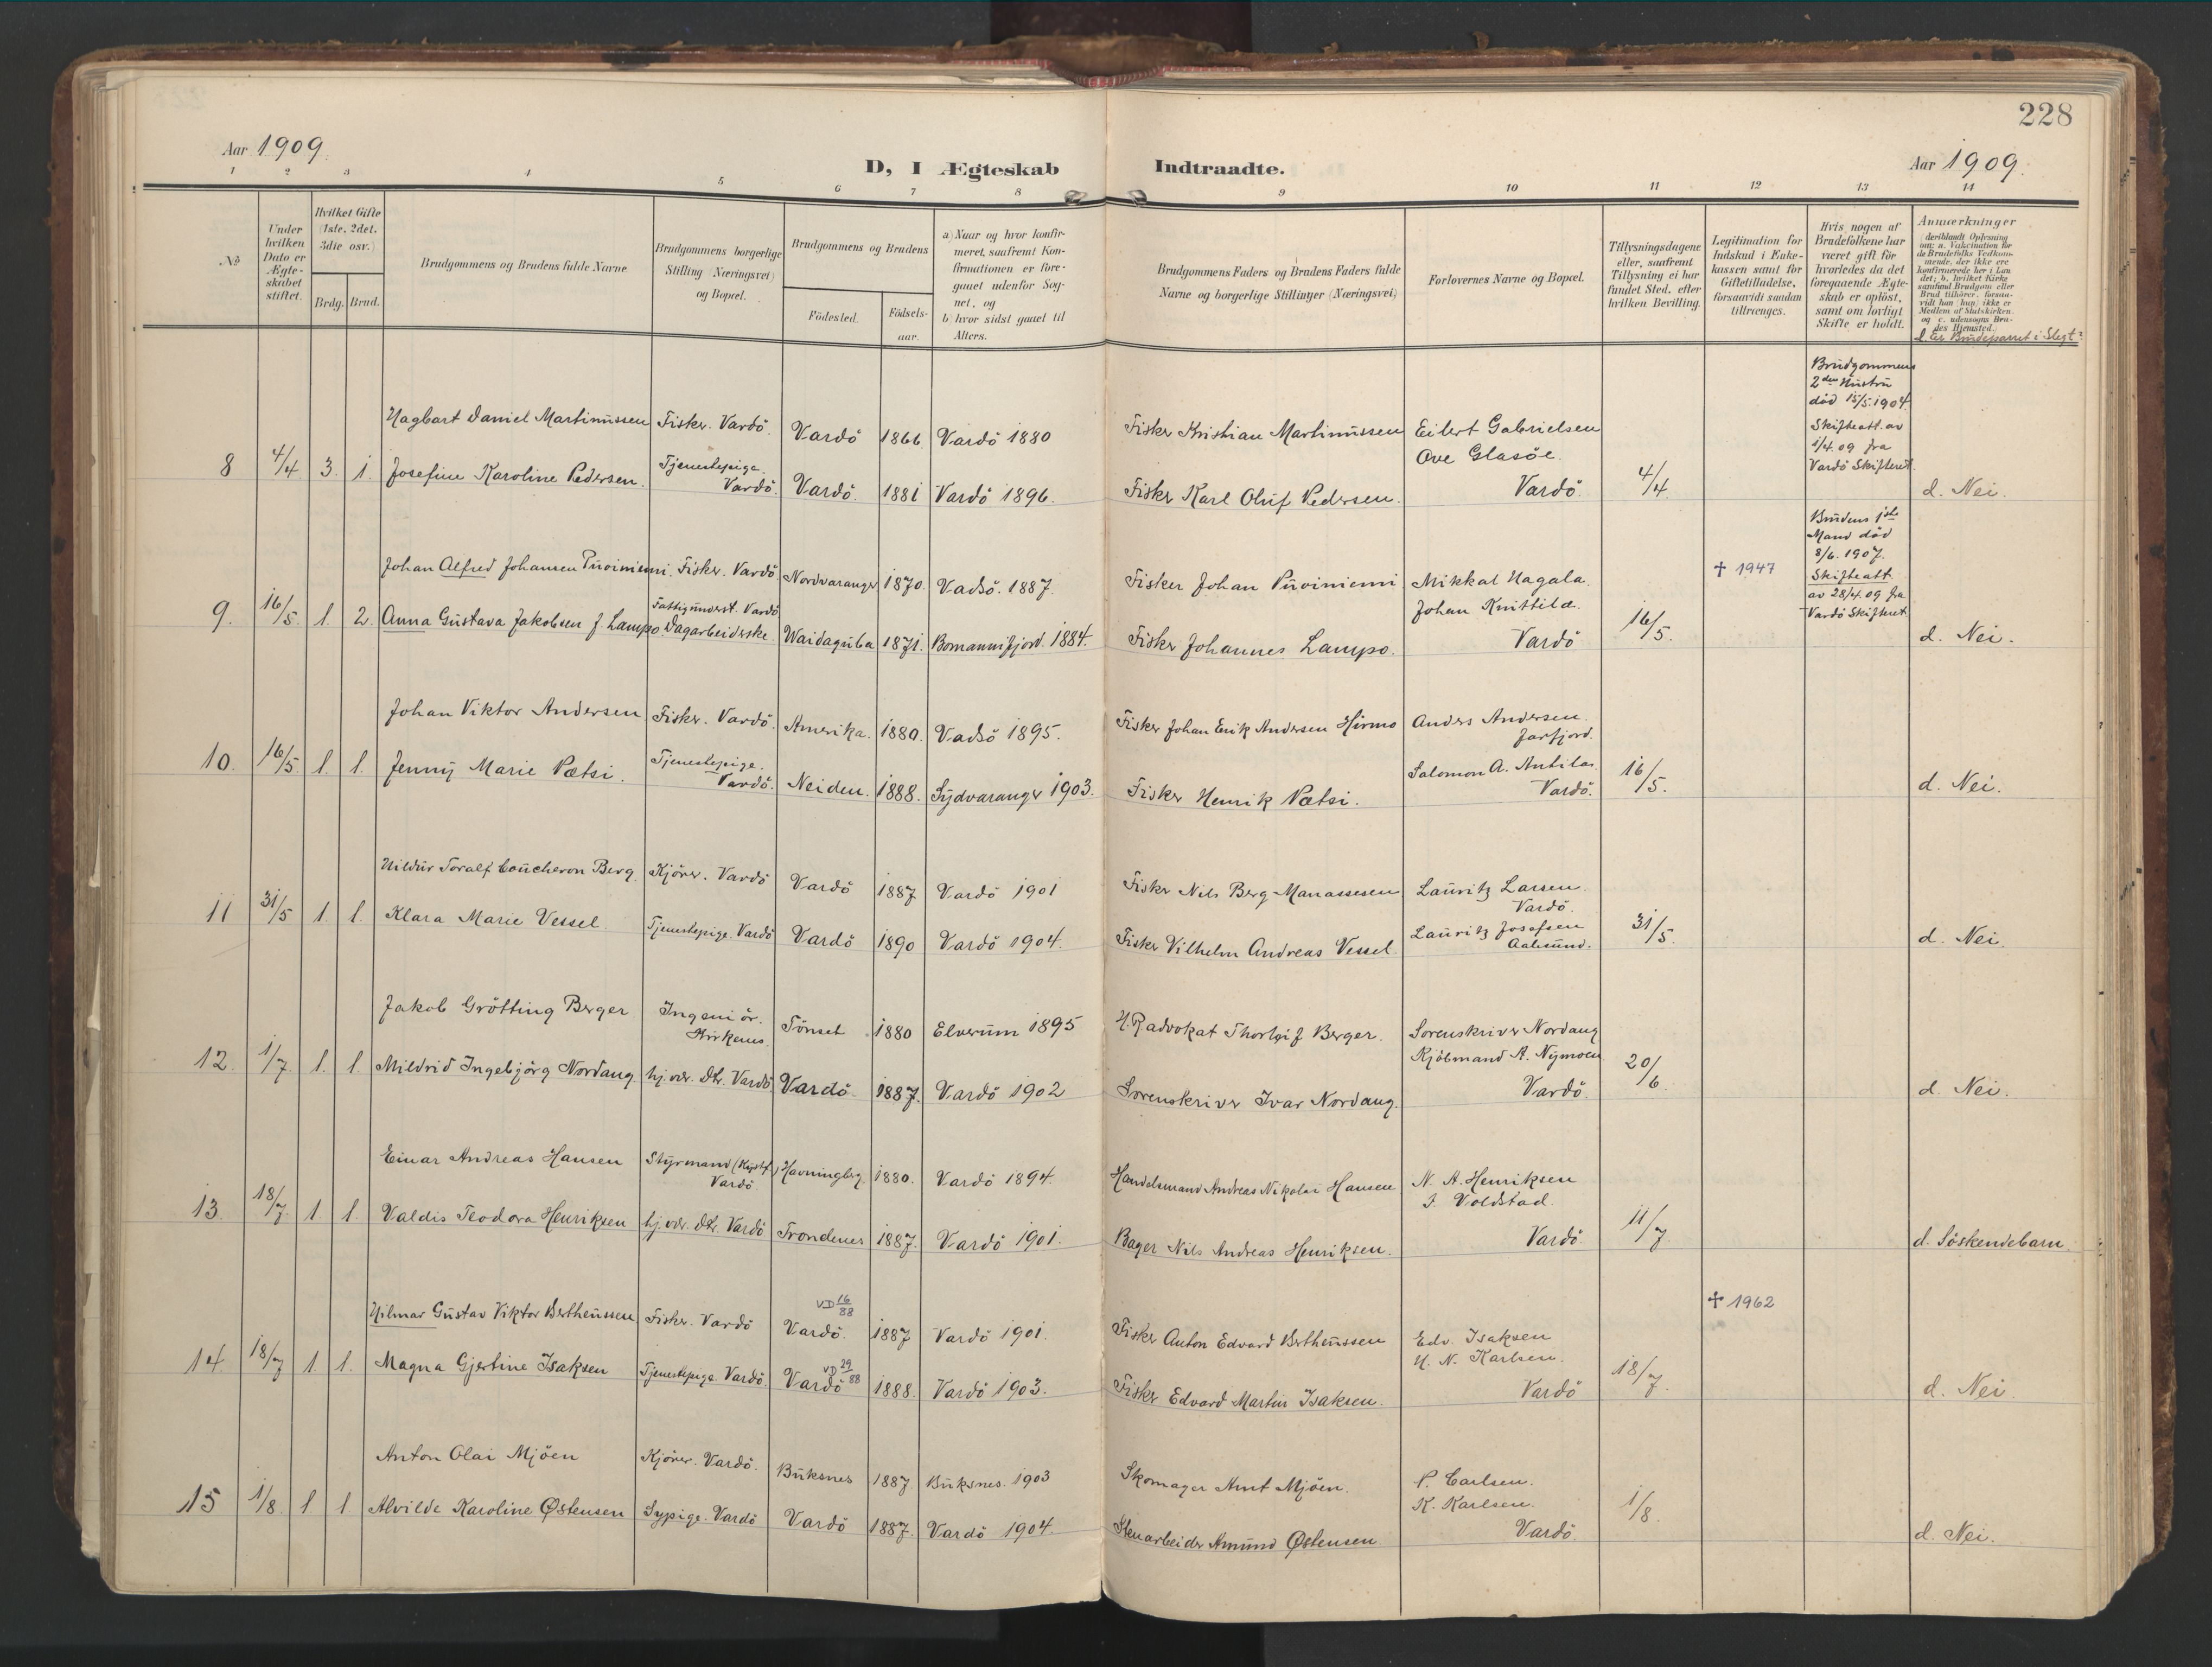 228
Aar 1909.
D, I Ægteskab Indtraadte.
Aar 1909.
1 2 3 4 5 6 7 8 9 10 11 12 13 14
No
Under
hvilken
Dato er
Ægte-
skabet
stiftet.
Hvilket Gifte
(1ste, 2det,
3die osv.)
Brdg. Brud.
Brudgommens og Brudens fulde Navne
Brudgommens borgerlige
Stilling (Næringsvei)
og Bopæl.
Brudgommens og Brudens
Fødested.
Fødsels-
aar.
a) Naar og hvor konfir-
meret, saafremt Kon-
firmationen er fore-
gaaet udenfor Sog-
net, og
b) hvor sidst gaaet til
Alters.
Brudgommens Faders og Brudens Faders fulde
Navne og borgerlige Stillinger (Næringsvei)
Forlovernes Navne og Bopæl.
Tillysningsdagene
eller, saafremt
Tillysning ei har
fundet Sted, efter
hvilken Bevilling.
Legitimation for
Indskud i Enke-
kassen samt for
Giftetilladelse,
forsaavidt saadan
tiltrænges.
Hvis nogen af
Brudefolkene har
været gift før
hvorledes da det
foregaaende Ægte-
skab er opløst,
samt om lovligt
Skifte er holdt.
Anmærkninger
(deriblandt Oplysning
om: a. Vakcination for
de Brudefolks Vedkom-
mende, der ikke ere
konfirmerede her i Lan
det; b. hvilket Kirke
samfund Brudgom eller
Brud tilhører, forsaa-
vidt han (hun) ikke er
Medlem af Statskirken,
og c. udensogns Bru-
des Hjemsted.)
d. Er Brudeparret i Slegt?
8 4/4 3. 1.
Hagbart Daniel Martinussen Fisker. Vardö. Vardö 1866 Vardö 1880 Fisker Kristian Martinussen
Josefine Karoline Pedersen. Tjenestepige. Vardö. Vardö. 1881 Vardö 1896. Fisker Karl Oluf Pedersen.
Eilert Gabrielsen
Ove Glasöe.
Vardö
4/4
Brudgommens
2den Hustru
död 15/5 1904.
Skifteatt. av
1/4 09 fra
Vardö Skifteret.
d. Nei.
9. 16/5. 1. 2.
Johan Alfred Johansen Puoiniemi. Fisker. Vardö. Nordvaranger 1870. Vadsö. 1887. Fisker Johan Puoiniemi
Anna Gustava Jakobsen f. Lampo Fattigunderst. Vardö Dagarbeiderske. Waidaguba 1871. Bomannifjord. 1884. Fisker Johannes Lampo.
Mikkal Hagala.
Johan Knittilæ.
Vardö
16/5.
✝ 1947
Brudens 1ste
Mand död
8/6. 1907.
Skifteatt.
av 28/4 09 fra
Vardö Skifteret
d. Nei.
10. 16/5. 1. 1.
Johan Viktor Andersen Fisker. Vardö. Amerika. 1880. Vadsö 1895. Fisker Johan Erik Andersen Hirmo
Jenny Marie Pætsi. Tjenestepige. Vardö. Neiden. 1888. Sydvaranger 1903. Fisker Henrik Pætsi.
Anders Andersen.
Jarfjord.
Salomon A. Antilas
Vardö.
16/5.
d. Nei.
11 31/5 1. 1.
Hildur Toralf Coucheron Berg. Kjörer. Vardö Vardö 1887 Vardö 1901 Fisker Nils Berg Manassesen
Klara Marie Vessel Tjenestepige. Vardö Vardö 1890 Vardö 1904. Fisker Vilhelm Andreas Vessel.
Lauritz Larsen.
Vardö.
Lauritz Josefsen
31/5.
d. Nei.
12 1/7. 1. 1.
Jakob Grötting Berger Ingeniör. Kirkenes. Tönset 1880 Elverum 1895 H.R.advokat Thorleif Berger.
Mildrid Ingebjörg Nordang hj.vær. Dtr. Vardö Vardö. 1887. Vardö 1902 Sorenskriver Ivar Nordang.
Sorenskriver Nordang
Kjöbmand A. Nymoen
Vardö
20/6.
d. Nei.
13. 18/7. 1 1.
Einar Andreas Hansen Styrmand (Kystf.) Vardö Havningberg. 1880. Vardö 1894. Handelsmand Andreas Nikolai Hansen
Valdis Teodora Henriksen hj.vær. Dtr. Vardö Trondenes 1887. Vardö 1901. Bager Nils Andreas Henriksen.
N. A. Henriksen
J. Voldstad.
Vardö
11/7.
d. Söskendebarn.
14. 18/7 1. 1.
Hilmar Gustav Viktor Bertheussen Fisker. Vardö VD 16/88 Vardö. 1887 Vardö 1901. Fisker Anton Edvard Bertheussen
Magna Gjertine Isaksen Tjenestepige. Vardö. VD 29/88 Vardö 1888. Vardö 1903. Fisker Edvard Martin Isaksen.
Edv. Isaksen
H. N. Karlsen.
Vardö
18/7.
✝ 1962
d. Nei
15 1/8. 1 1.
Anton Olai Mjöen Kjörer. Vardö. Buksnes 1887. Buksnes. 1903 Skomager Arnt Mjöen.
Alvilde Karoline Østensen Sypige. Vardö Vardö 1887. Vardö 1904. Stenarbeider Amund Østensen
P. Carlsen.
K. Karlsen.
Vardö
1/8.
d. Nei.